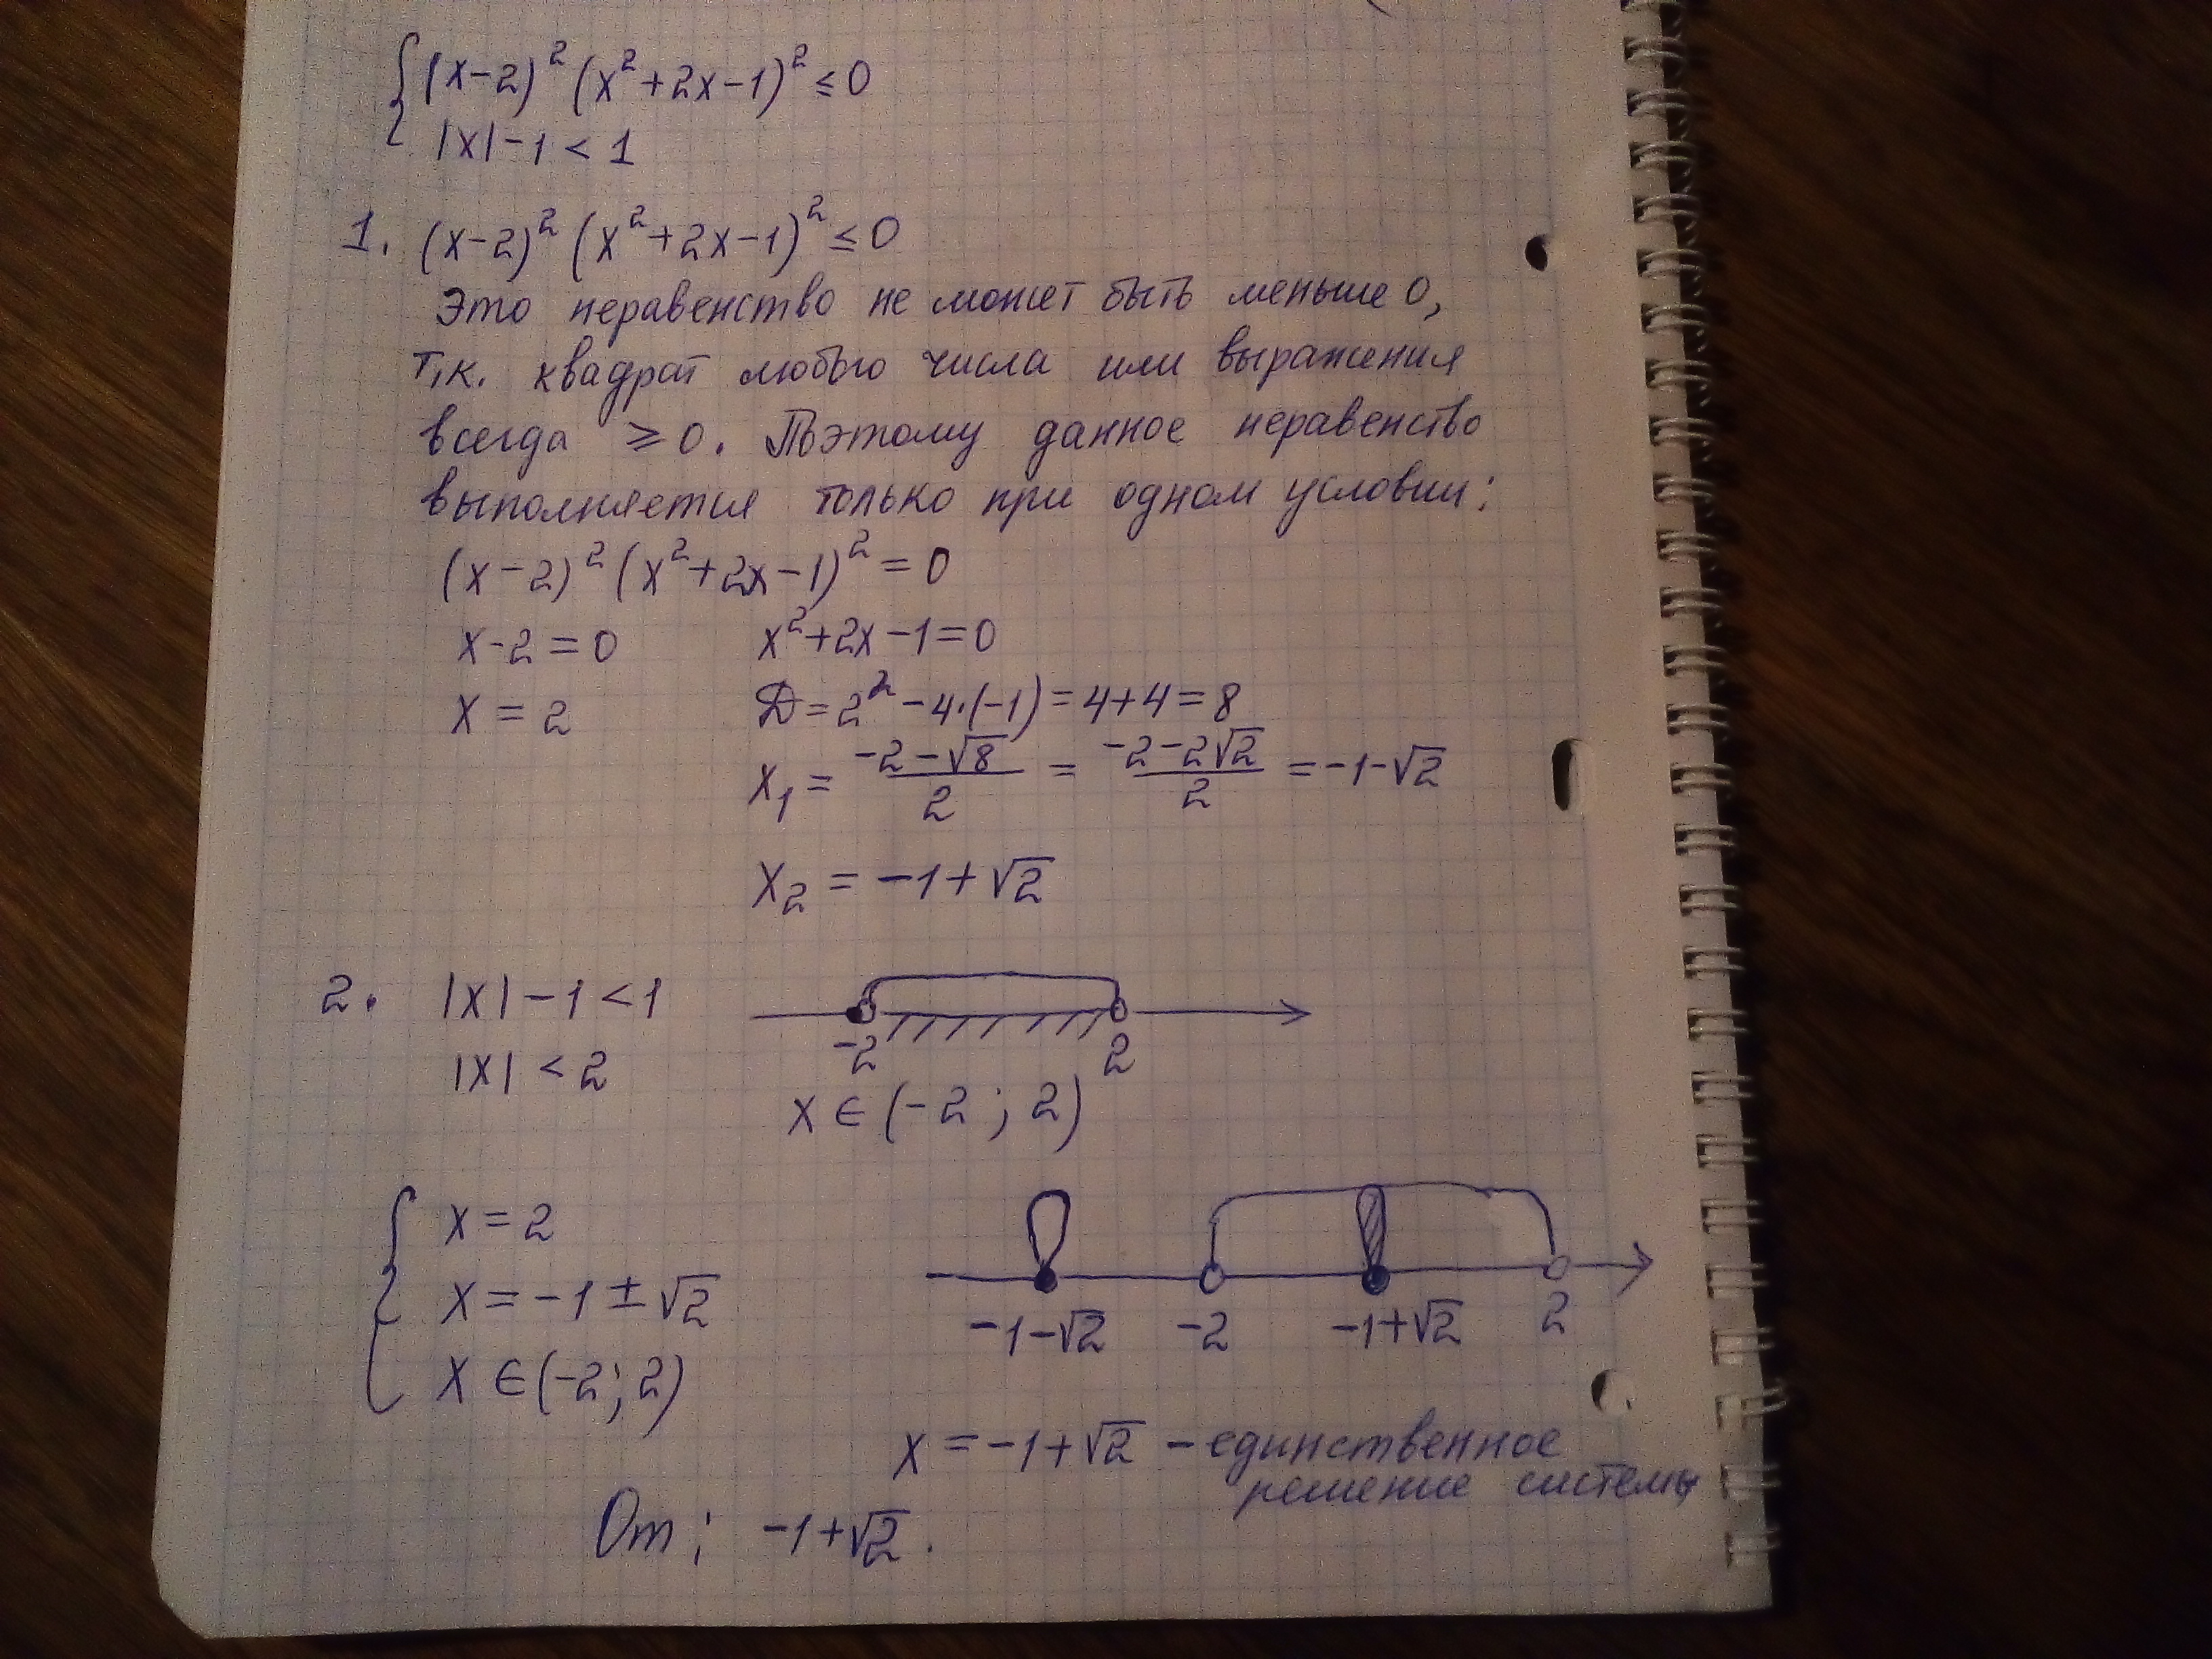 { (x-2)² (x²+2x-1)² ≤ 0
|x|-1 < 1
1. (x-2)² (x²+2x-1)² ≤ 0
Это неравенство не может быть меньше 0,
т.к. квадрат любого числа или выражения
всегда ≥ 0. Поэтому данное неравенство
выполняется только при одном условии:
(x-2)² (x²+2x-1)² = 0
x-2=0 x²+2x-1=0
x = 2 D = 2² - 4·(-1) = 4+4 = 8
x₁ = (-2-√8)/2 = (-2-2√2)/2 = -1-√2
x₂ = -1+√2
2. |x|-1 < 1
|x| < 2 -2 2
x ∈ (-2; 2)
{ x = 2
x = -1 ± √2 -1-√2 -2 -1+√2 2
x ∈ (-2; 2)
x = -1+√2 - единственное
решение системы
От: -1+√2.